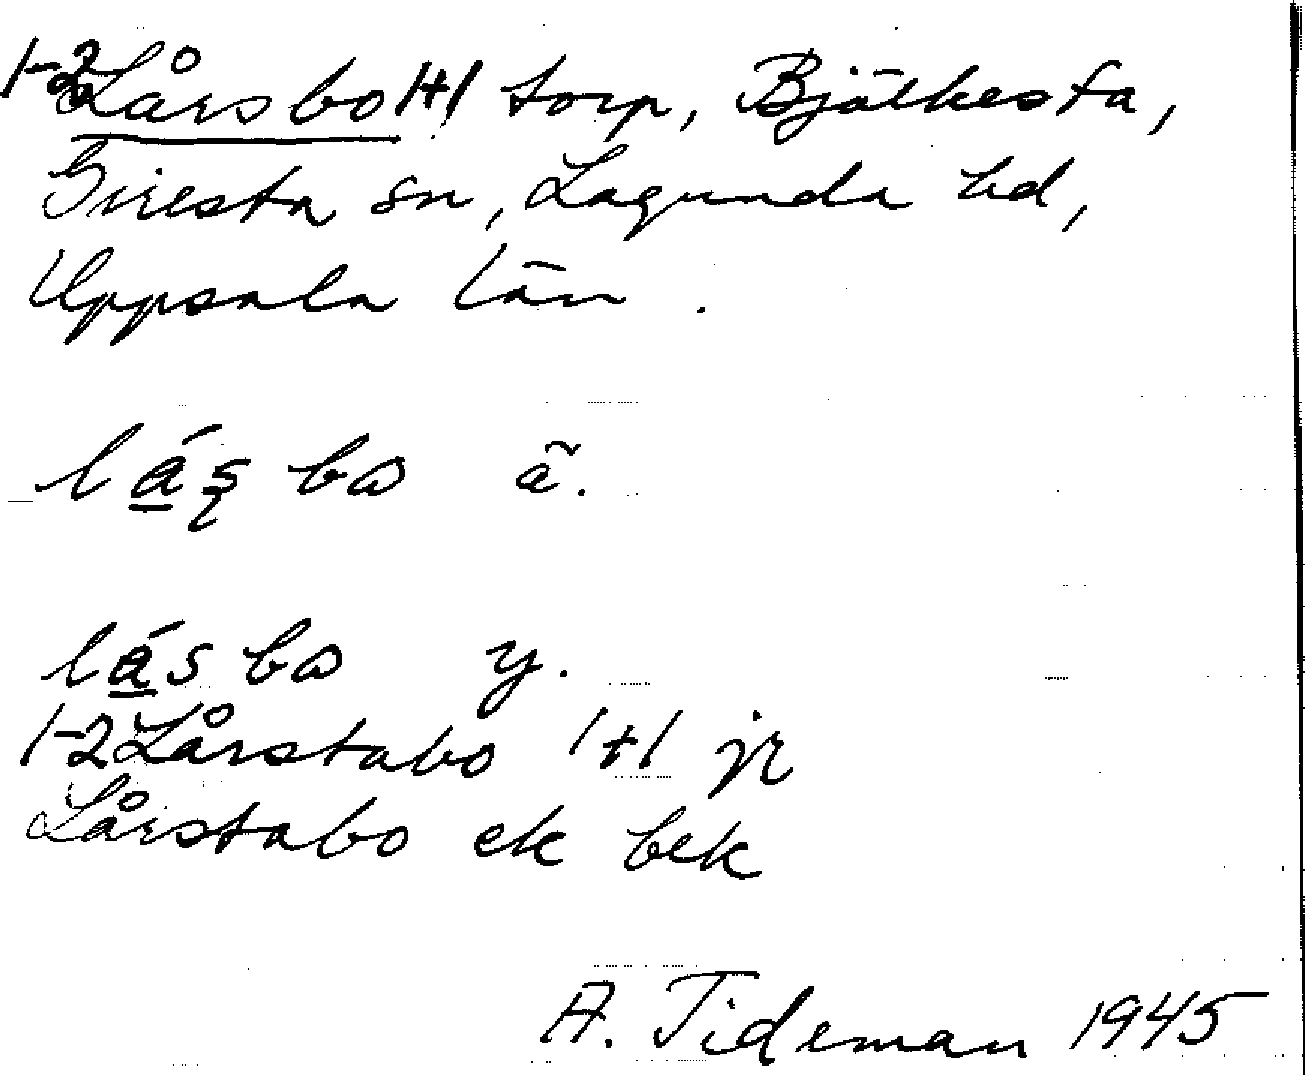 1-2 Lårsbo 1+1 torp, Bjälkesta,
Giresta sn, Lagunda hd,
Uppsala län.
lá̱ş bω ä.
lá̱s bω y.
1-2 Lårstabo 1+1 jr
Lårstabo ek bek
A. Tideman 1945